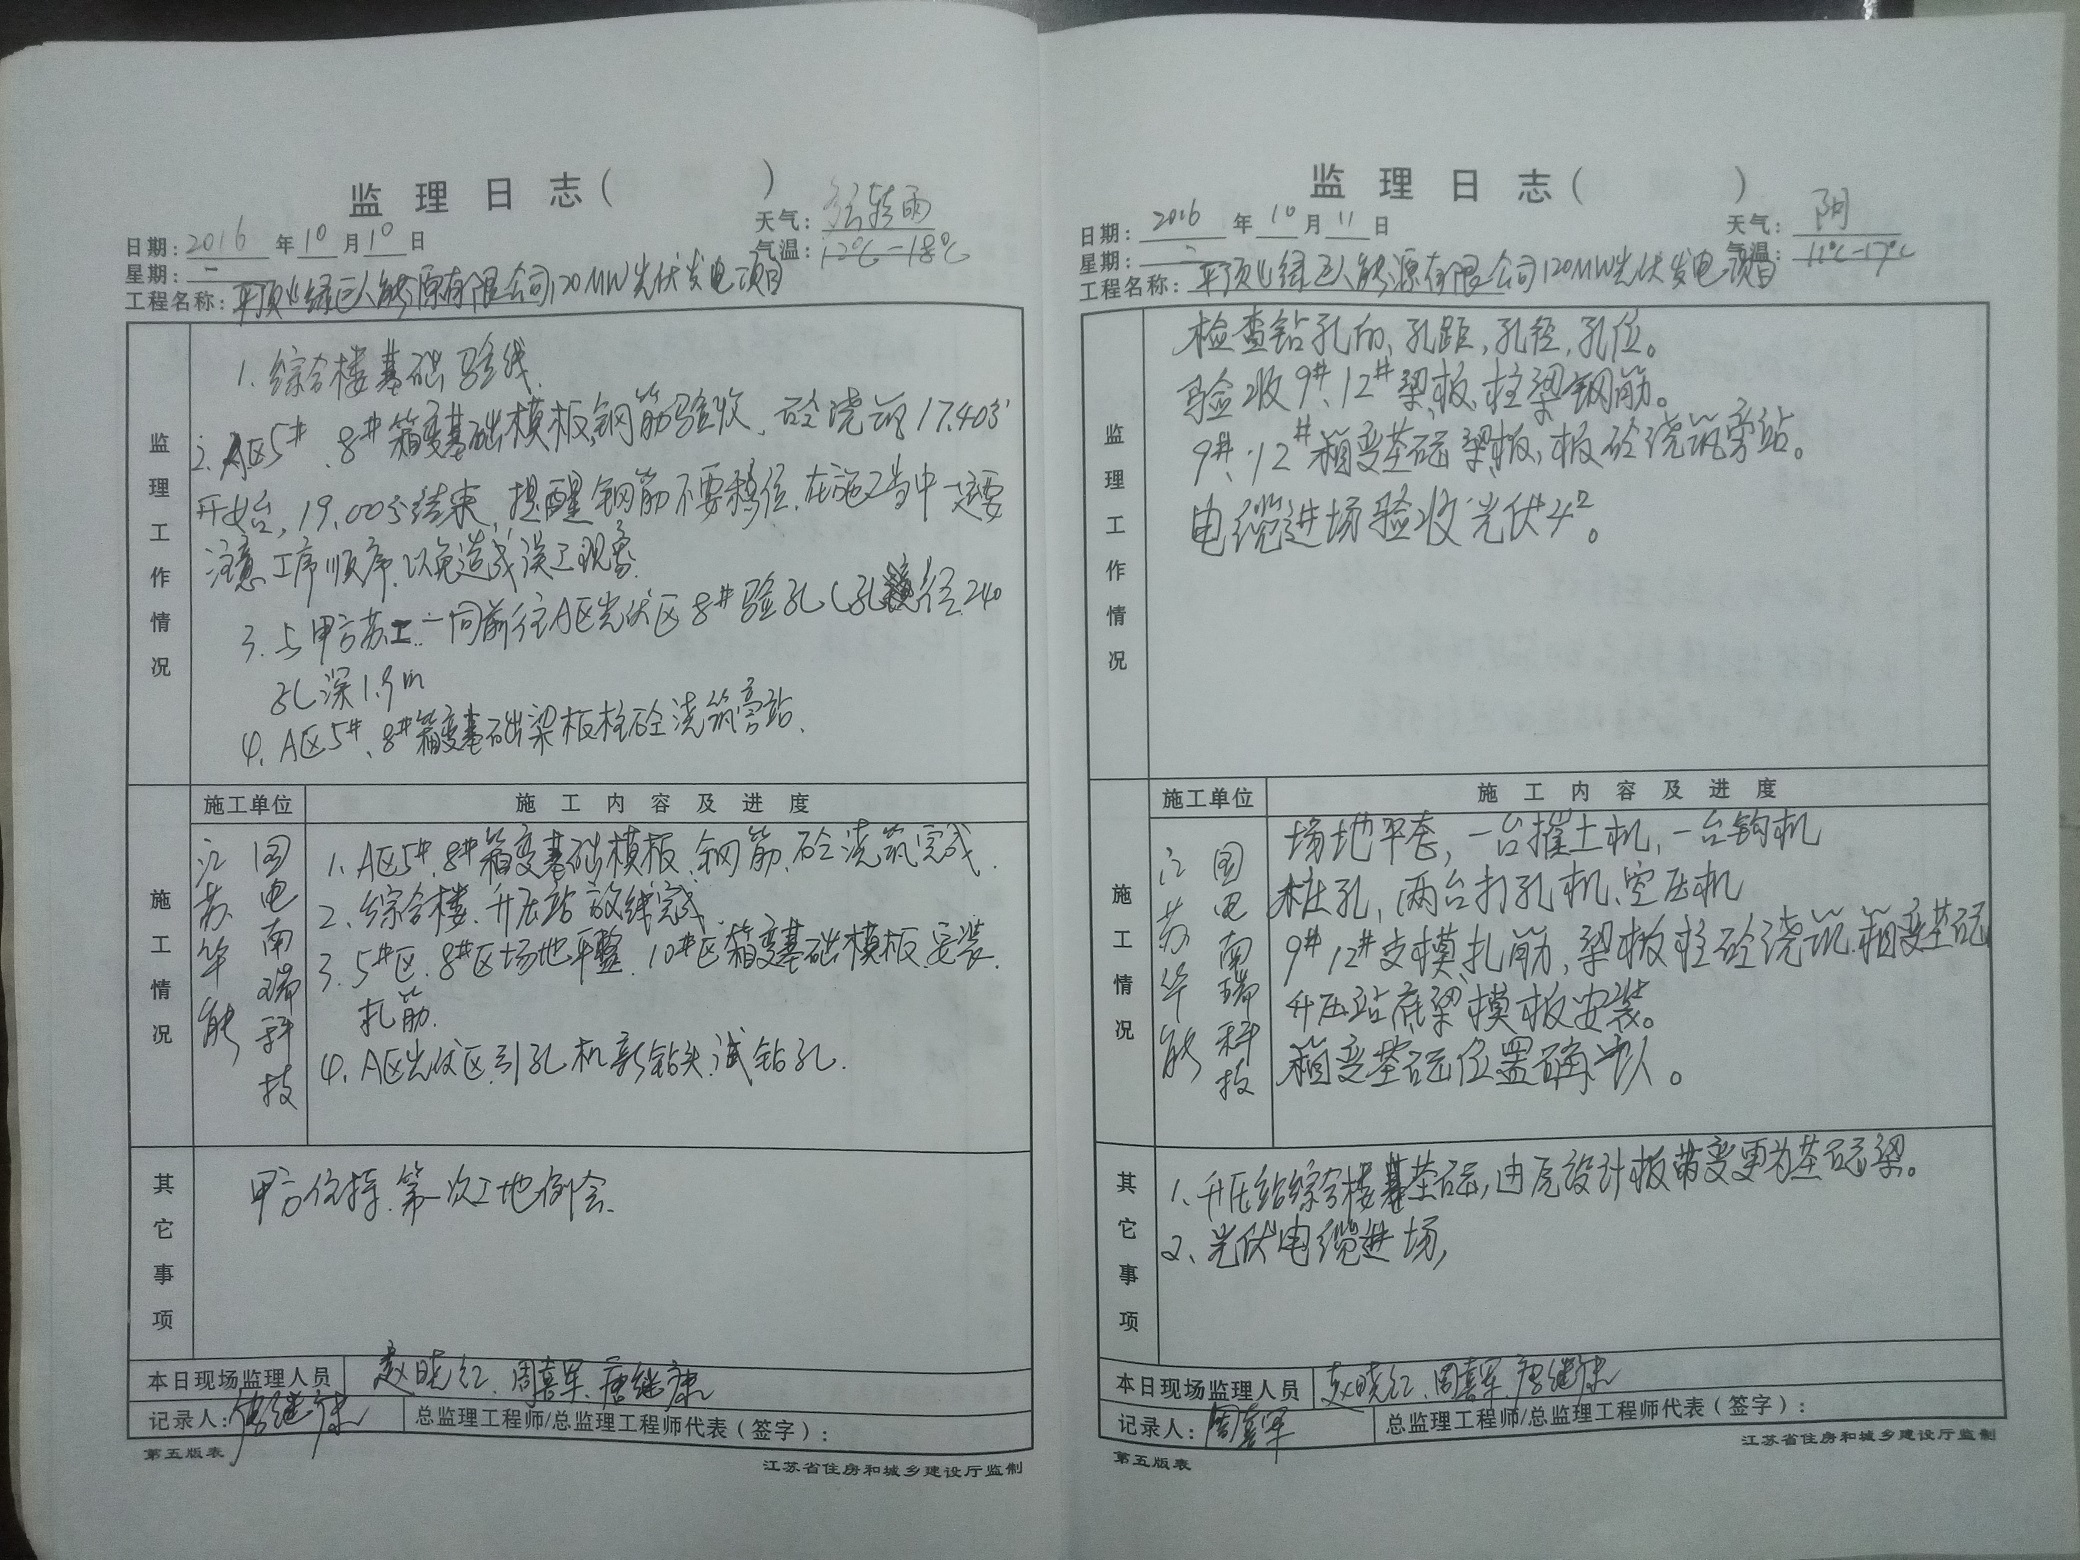 监理日志( )
日期: 2016 年 10 月 10 日
天气: 多云转雨
星期: 一
气温: 12℃-18℃
工程名称: 平顶山绿巨人能源有限公司120MW光伏发电项目
监理工作情况
1. 综合楼基础验线.
2. A区5#、8#箱变基础模板,钢筋验收、砼浇筑17.40分
开始, 19.00分结束, 提醒钢筋不要移位. 在施工当中一定要
注意工序顺序. 以免造成误工现象.
3. 与甲方苏工一同前往A区光伏区8#验孔(孔径.240
孔深1.9m
4. A区5#、8#箱变基础梁板柱砼浇筑旁站.
施工情况
施工单位
施工内容及进度
江苏华能
国电南瑞科技
1. A区5#.8#箱变基础模板.钢筋.砼浇筑完成.
2. 综合楼.升压站放线完成
3. 5#区.8#区场地平整.10#区箱变基础模板.安装.
扎筋.
4. A区光伏区.引孔机新钻头.试钻孔.
其它事项
甲方住持.第一次工地例会.
本日现场监理人员 赵晓红.周喜军.唐继康
记录人: 唐继康 总监理工程师/总监理工程师代表(签字):
第五版表
江苏省住房和城乡建设厅监制
监理日志( )
日期: 2016 年 10 月 11 日
天气: 阴
星期: 二
气温: 11℃-17℃
工程名称: 平顶山绿巨人能源有限公司120MW光伏发电项目
监理工作情况
检查钻孔的、孔距,孔径,孔位。
验收9#、12#梁、板、柱梁钢筋。
9#、12#箱变基础梁板、板砼浇筑旁站。
电缆进场验收光伏4²。
施工情况
施工单位
施工内容及进度
江苏华能
国电南瑞科技
场地平套, 一台摧土机, 一台钩机
桩孔, 两台打孔机、空压机
9# 12#支模、扎筋, 梁板柱砼浇筑.箱变基础
升压站底梁模板安装。
箱变基础位置确认。
其它事项
1、升压站综合楼基础, 由原设计板带变更为基础梁。
2、光伏电缆进场,
本日现场监理人员 赵晓红.周喜军.唐继康
记录人: 周喜军 总监理工程师/总监理工程师代表(签字):
第五版表
江苏省住房和城乡建设厅监制